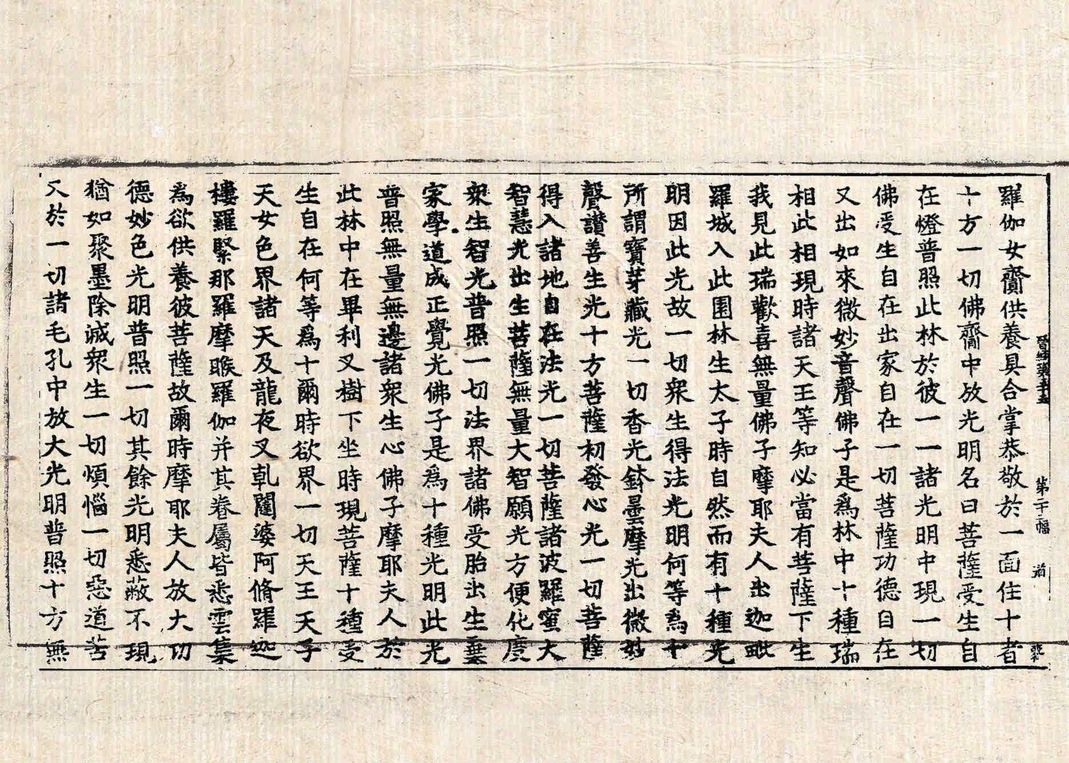 羅伽女齎供養具合掌恭敬於一面住十者
第二十幅
十方一切佛齊中放光明名曰菩薩受生自
在燈普照此林於彼一一諸光明中現一切
佛受生自在出家自在一切菩薩功德自在
又出如來微妙音聲佛子是爲林中十種瑞
相此相現時諸天王等知必當有菩薩下生
我見此瑞歡喜無量佛子摩耶夫人出迦毗
羅城入此園林生太子時自然而有十種光
明因此光故一切衆生得法光明何等爲十
所謂寶芽藏光一切香光鉢曇摩光出微妙
聲讃善生光十方菩薩初發心光一切菩薩
得入諸地自在法光一切菩薩諸波羅蜜大
智慧光出生菩薩無量大智願光方便化度
衆生智光普照一切法界諸佛受胎出生棄
家學道成正覺光佛子是爲十種光明此光
普照無量無邊諸衆生心佛子摩耶夫人於
此林中在畢利叉樹下坐時現菩薩十種受
生自在何等爲十爾時欲界一切天王天子
天女色界諸天及龍夜叉乹闥婆阿脩羅迦
樓羅緊那羅摩睺羅伽并其眷屬皆悉雲集
爲欲供養彼菩薩故爾時摩耶夫人放大功
德妙色光明普照一切其餘光明悉蔽不現
猶如聚墨除滅衆生一切煩惱一切惡道苦
又於一切諸毛孔中放大光明普照十方無